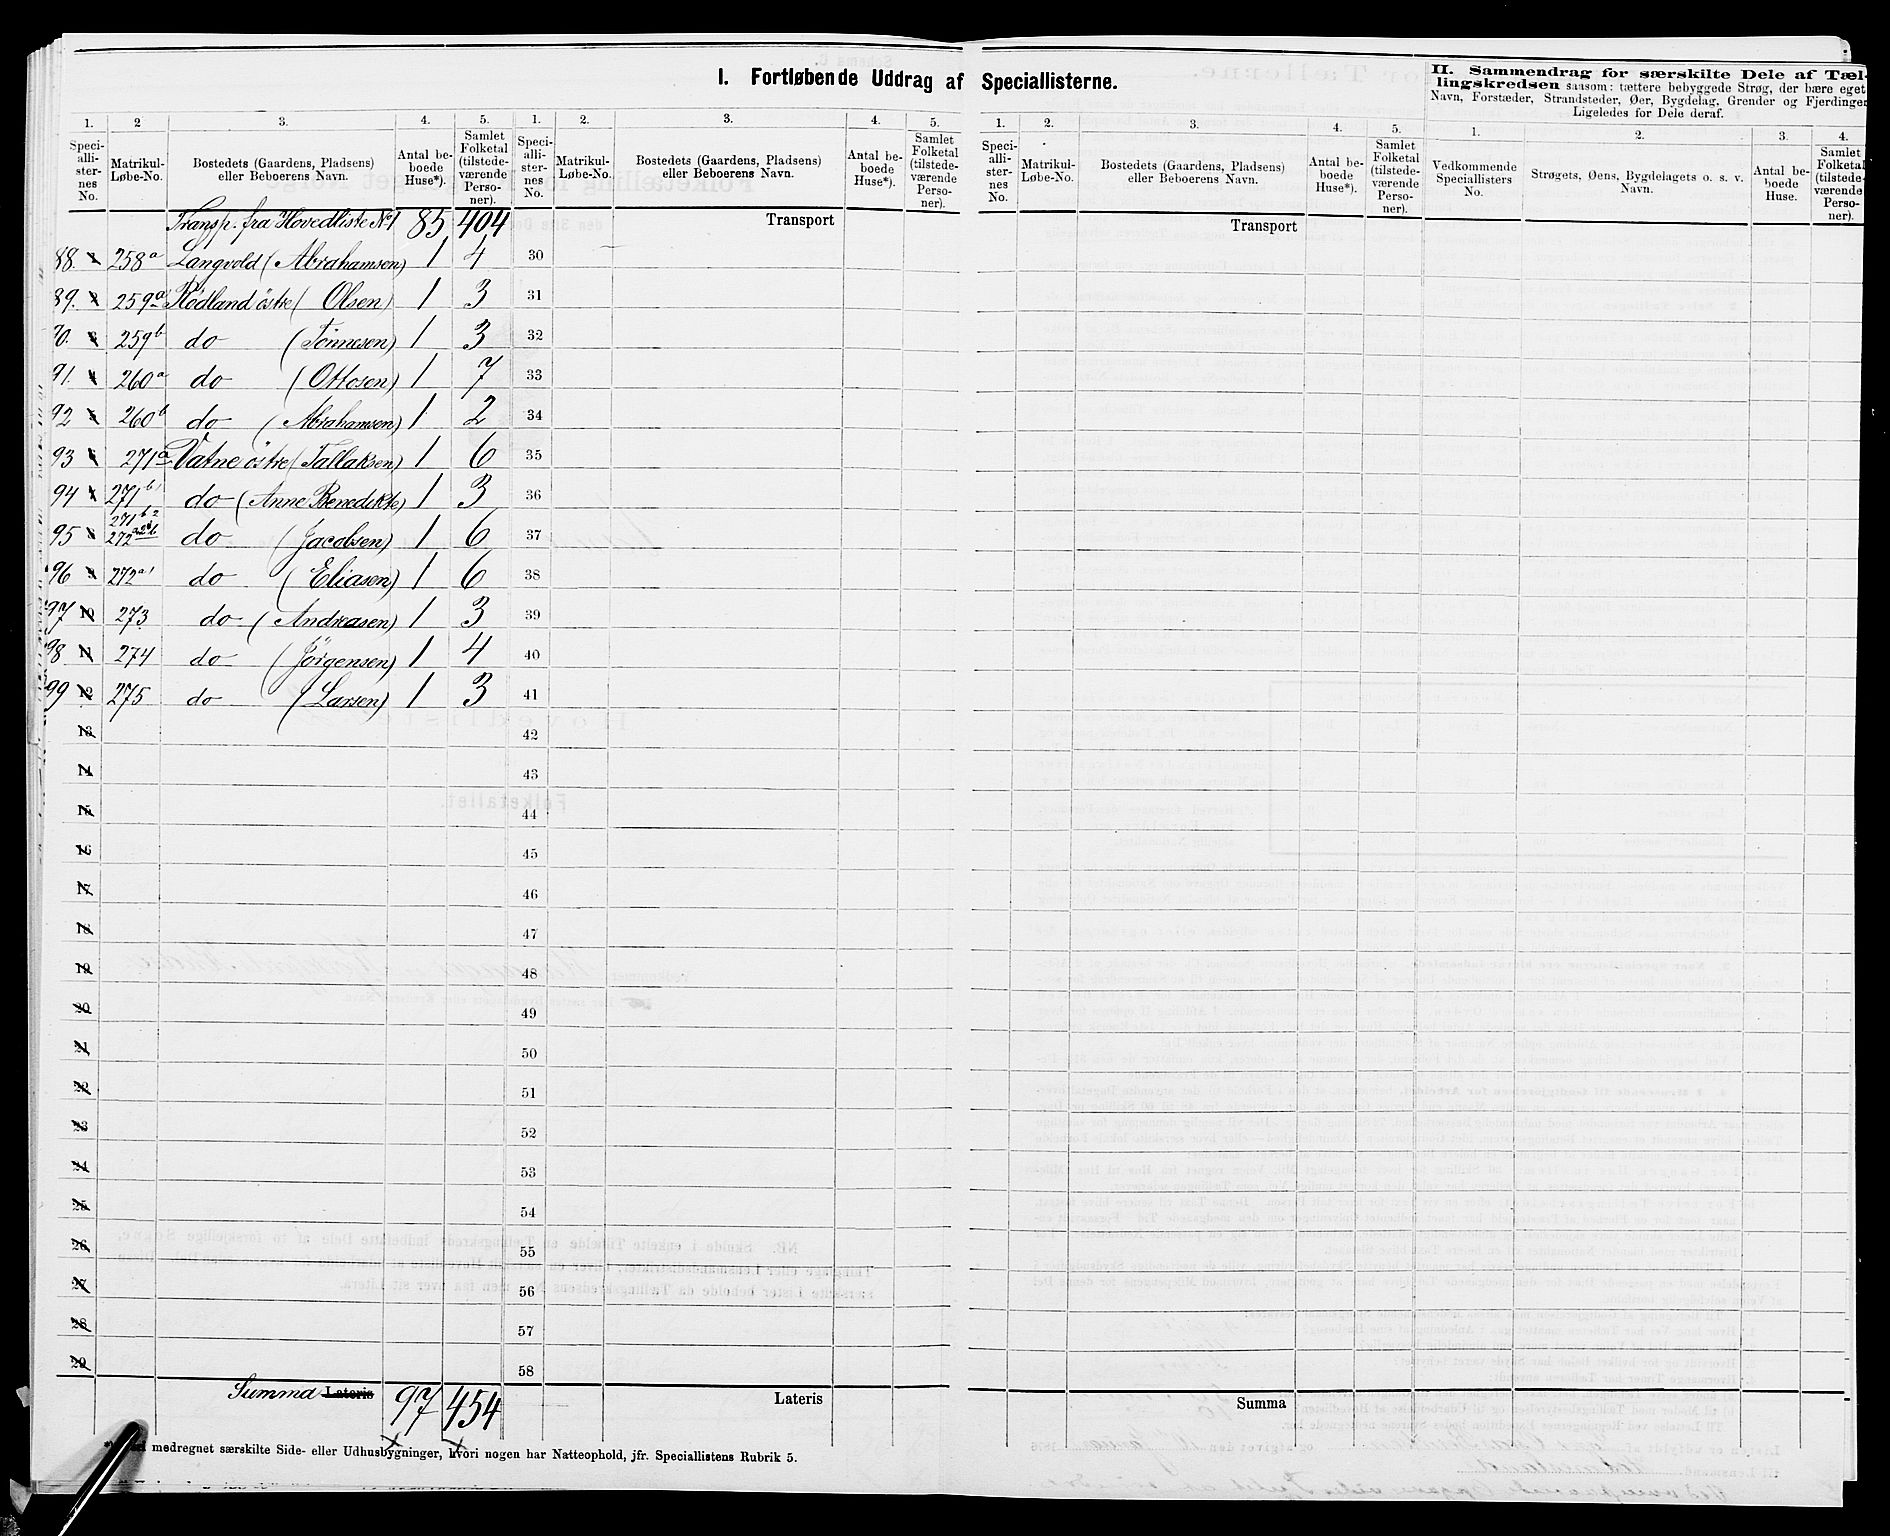 I. Fortløbende Uddrag af Speciallisterne.
II. Sammendrag for særskilte Dele af Tællingskredsen saasom: tættere bebyggede Strøg, der bære eget
Navn, Forstæder, Strandsteder, Øer, Bygdelag, Grender og Fjerdinger
Ligeledes for Dele deraf.
1. 2 3. 4. 5. 1. 2. 3. 4. 5. 1. 2. 3. 4. 5. 1. 2. 3. 4.
Speciallisternes No. Matrikul-Løbe-No. Bostedets (Gaardens, Pladsens) eller Beboerens Navn. Antal beboede Huse*). Samlet Folketal (tilstedeværende Personer).
Speciallisternes No. Matrikul-Løbe-No. Bostedets (Gaardens, Pladsens) eller Beboerens Navn. Antal beboede Huse*). Samlet Folketal (tilstedeværende Personer).
Speciallisternes No. Matrikul-Løbe-No. Bostedets (Gaardens, Pladsens) eller Beboerens Navn. Antal beboede Huse*). Samlet Folketal (tilstedeværende Personer).
Vedkommende Speciallisters No. Strøgets, Øens, Bygdelagets o. s. v. Navn. Antal beboede Huse. Samlet Folketal (tilstedeværende Personer).
Transp. fra Hovedliste No 1 85 404 Transport Transport
88. 258a Langvold (Abrahamsen) 1 4 30
89. 259a Rödland östre (Olsen) 1 3 31
90. 259b do (Tönnesen) 1 3 32
91. 260a do (Ottosen) 1 7 33
92 260b do (Abrahamsen) 1 2 34
93 271a Vatne östre (Tallaksen) 1 6 35
94 271b1 do (Anne Benedikte) 1 3 36
271b2
95 272 do (Jacobsen) 1 6 37
96 272a1 do (Eliasen) 1 6 38
97 10 273 do (Andreasen) 1 3 39
98 11 274 do (Jörgensen) 1 4 40
99 12 275 do (Larsen) 1 3 41
13 42
14 43
15 44
16 45
17 46
18 47
19 48
20 49
21 50
22 51
23 52
24 53
25 54
26 55
27 56
28 57
29 58
Summa Lateris 97 454 Lateris Summa
medregnet særskilte Side- eller Udhusbygninger, hvori nogen har Natteophold, jfr. Speciallistens Rubrik 5.